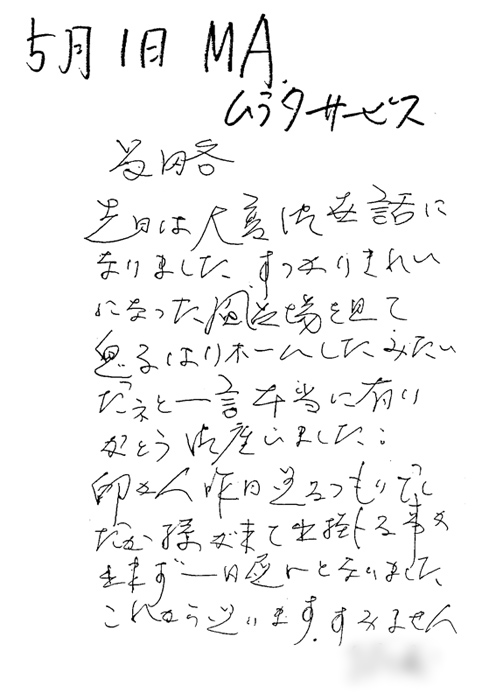 5月1日 MA.
ムラタサービス
前略
先日は大変御世話に
なりました すっかりきれい
になった風呂場を見て
息子はリホームしたみたい
だネと一言本当に有り
がとう御座いました。
印かん昨日送るつもりでし
たが孫が来て出掛ける事が
出来ず一日遅れとなりました
これから送ります。すみません